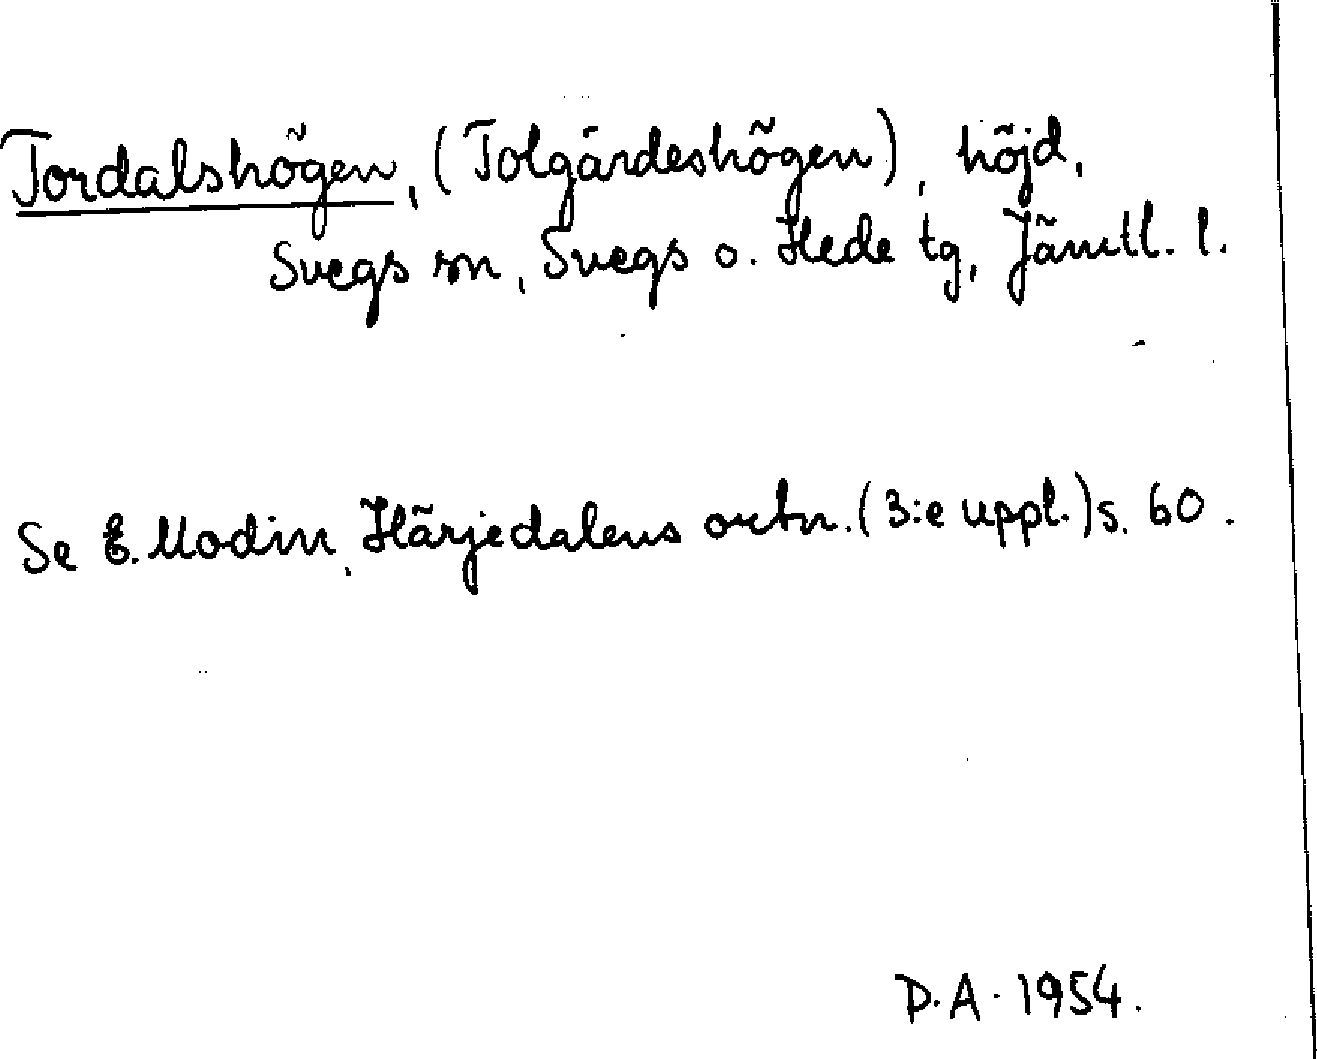 Tordalshögen, (Tolgårdeshögen), höjd,
Svegs sn, Svegs o. Hede tg, Jämtl. l.
Se E. Modin, Härjedalens ortn. (3:e uppl.) s. 60.
D.A. 1954.